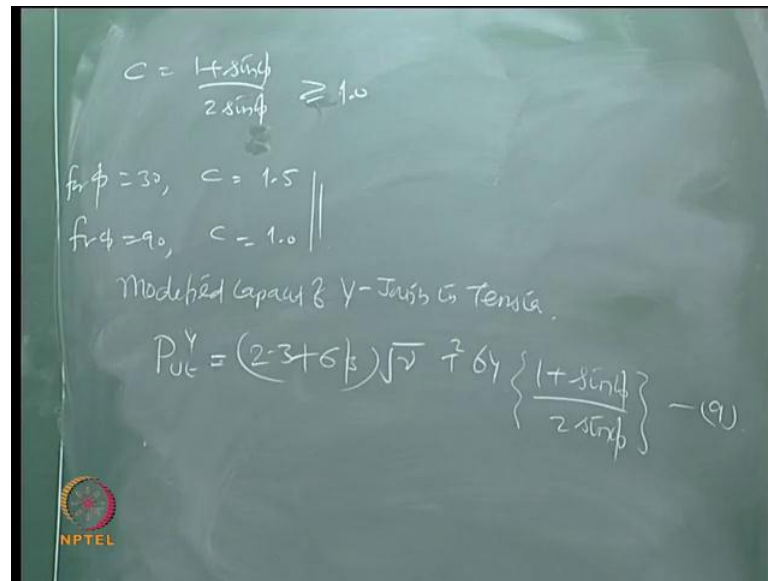 C = 1+sinϕ / 2 sinϕ ≥ 1.0
for ϕ = 30, C = 1.5
for ϕ = 90, C = 1.0
Modified Capacity of Y-Joints in Tension.
P_ut^Y = (2.3+6β)√γ T² σy {1+sinϕ / 2 sinϕ} - (9)
NPTEL